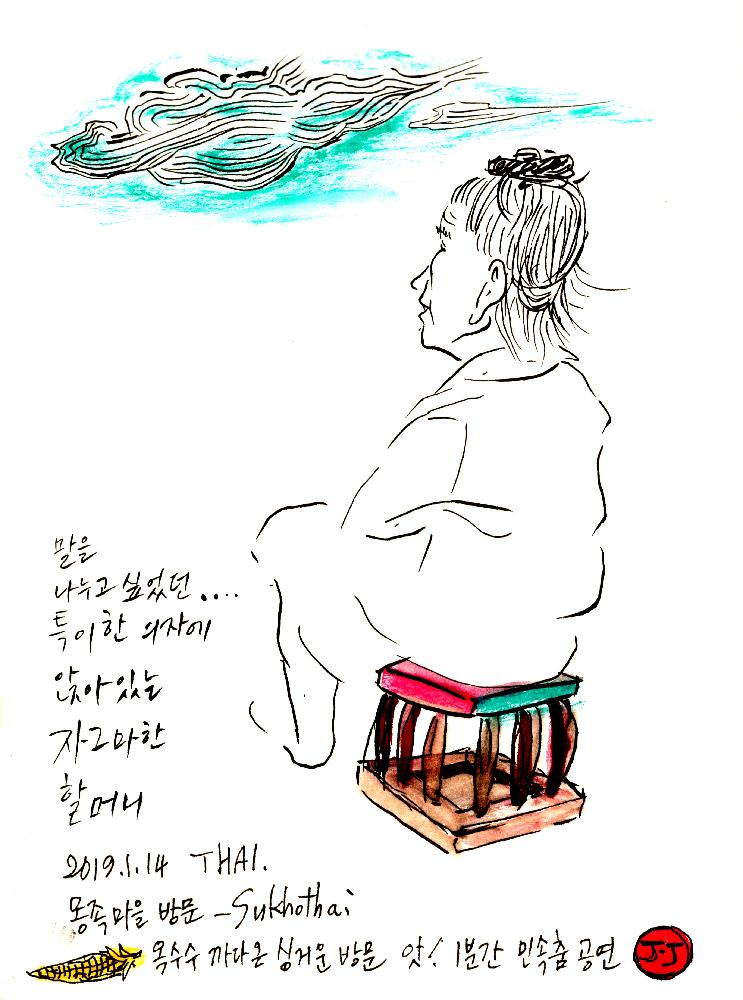 말을
나누고 싶었던....
특이한 의자에
앉아있는
자그마한
할머니
2019.1.14 THAI.
몽족마을 방문 - Sukhothai
옥수수 까다온 싱거운 방문 앗! 1분간 민속춤 공연 J.J